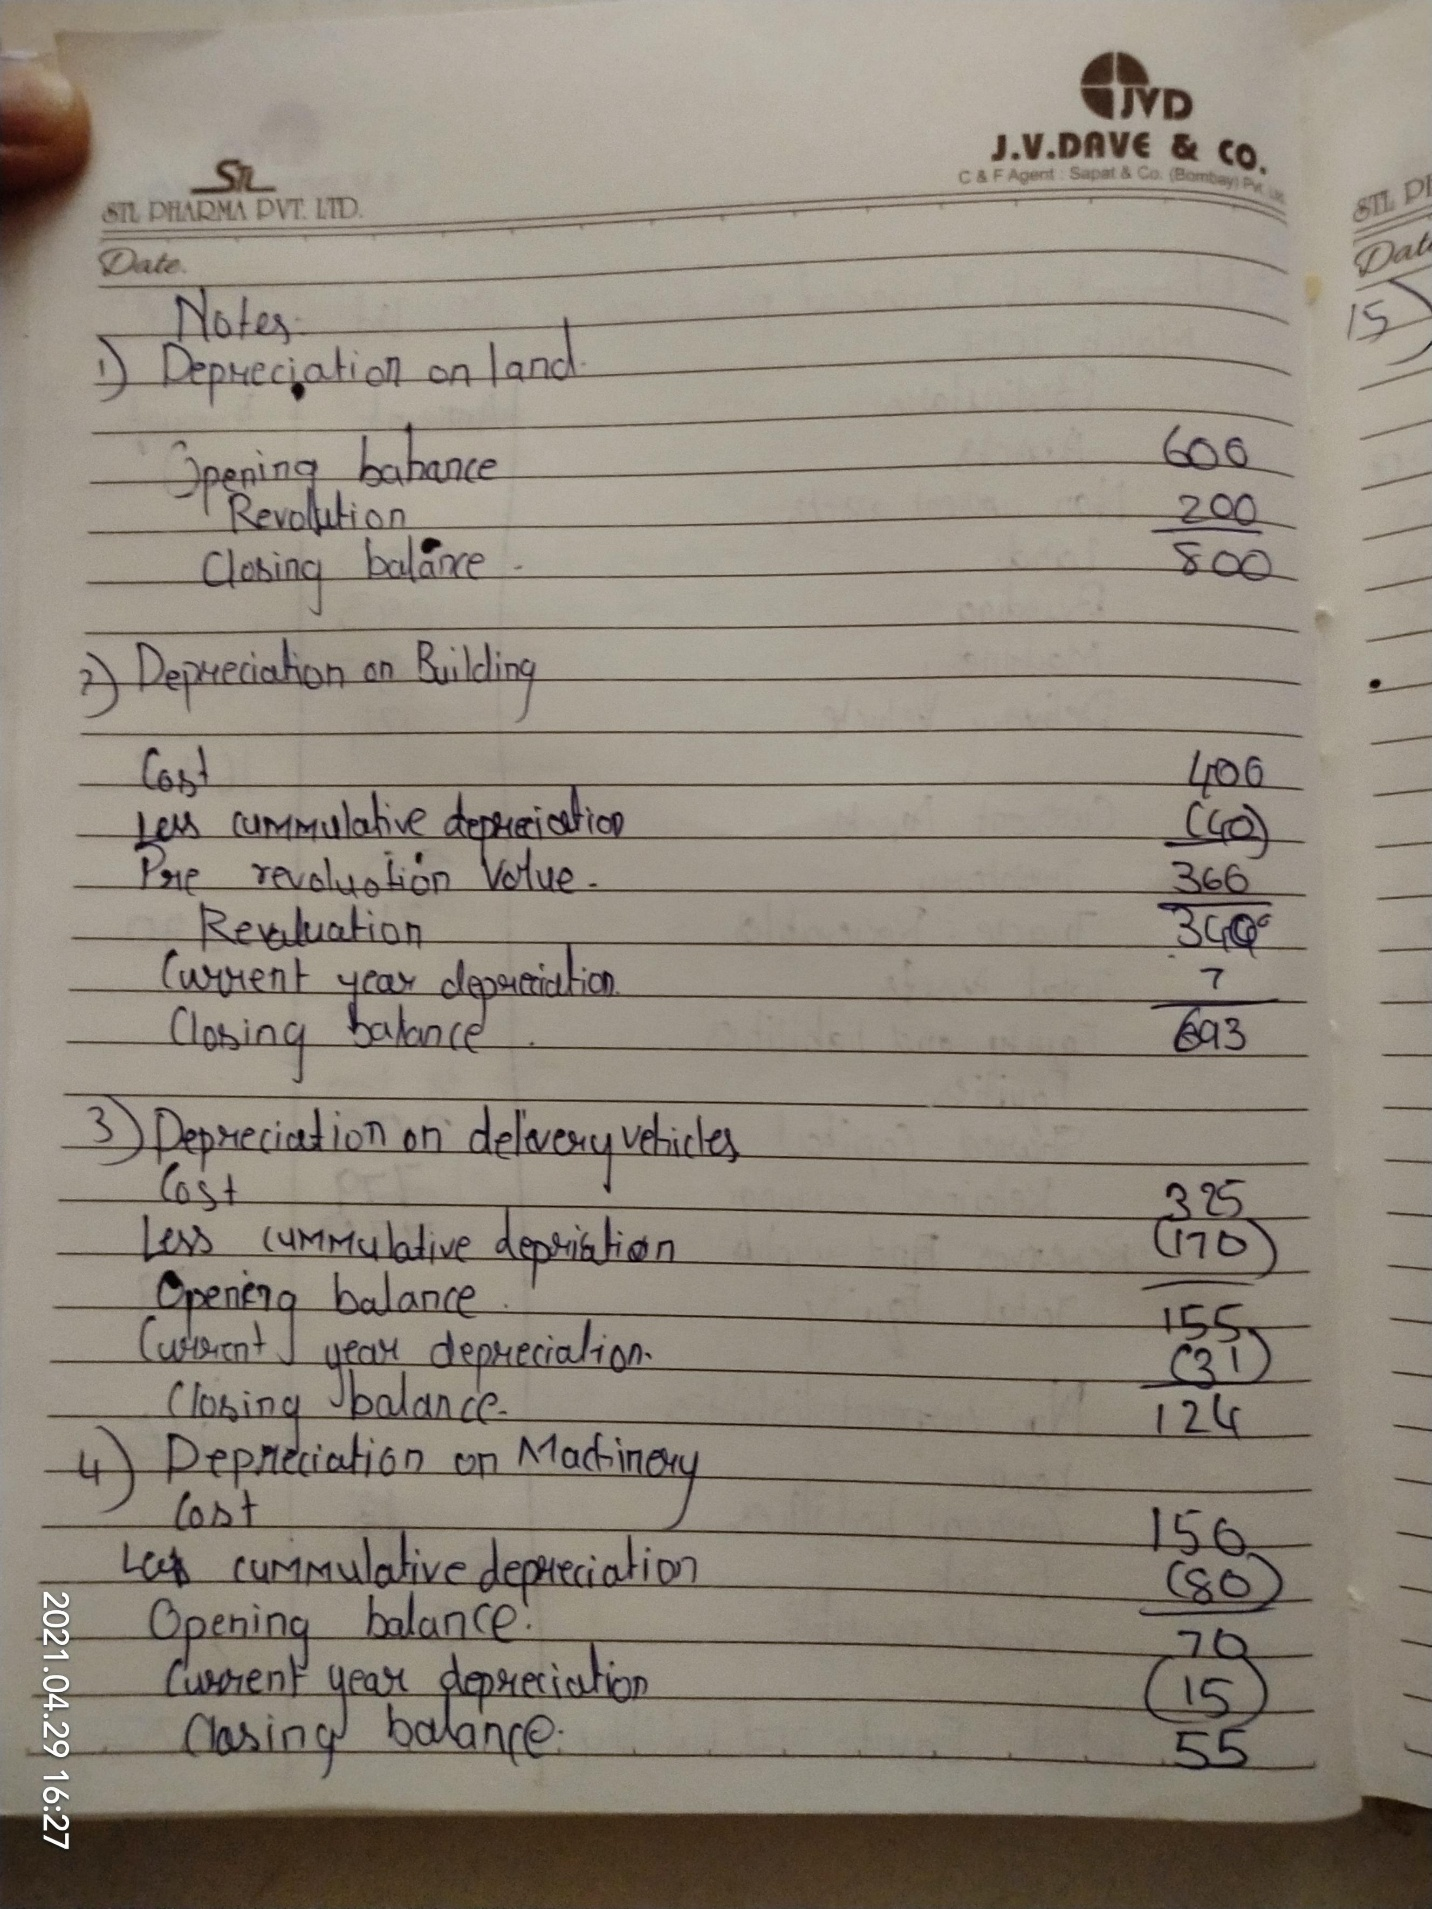 JVD
J.V.DAVE & CO.
C & F Agent : Sapat & Co. (Bombay) Pvt. Ltd.
STL
STL PHARMA PVT. LTD.
Date.
Notes:
1) Depreciation on land.
Opening bahance 600
Revolution 200
Closing balance - 800
2) Depreciation on Building
Cost 400
Less cummulative depreciation (40)
Pre revaluation Value - 360
Revaluation 340
Current year depreciation 7
Closing balance . 693
3) Depreciation on delivery vehicles
Cost 325
Less cummulative depriation (170)
Opening balance . 155
Current year depreciation. (31)
Closing balance. 124
4) Depreciation on Machinery
Cost 150
Less cummulative depreciation (80)
Opening balance. 70
Current year depreciation (15)
Closing balance. 55
2021.04.29 16:27
STL
Dat
15)